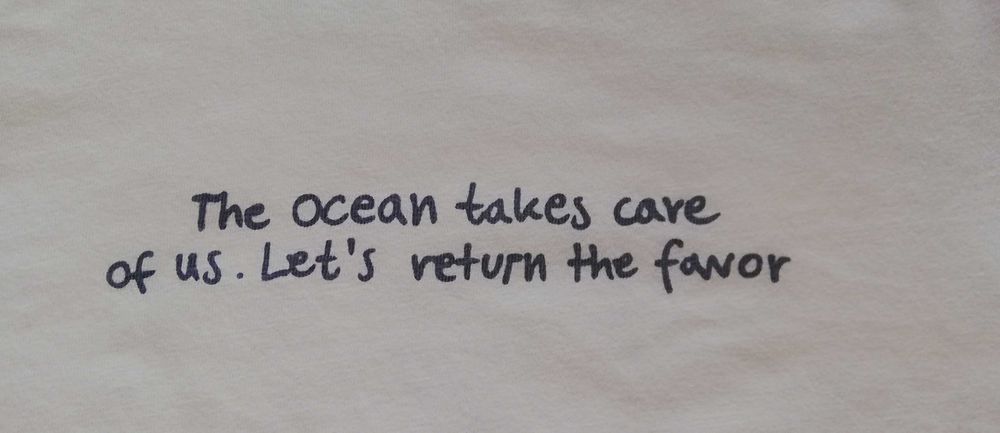 The Ocean takes care
of us. Let's return the favor